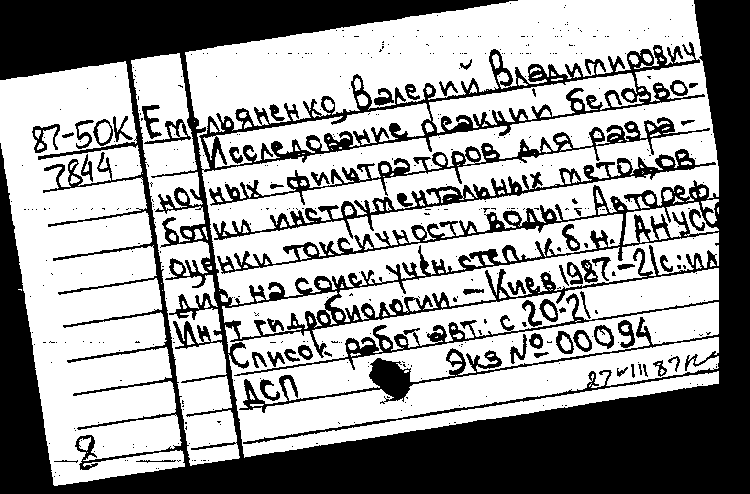 87-50К
7844
Емельяненко, Валерий Владимирович
Исследование реакций беспозво-
ночных-фильтраторов для разра-
ботки инструментальных методов
оценки токсичности воды: Автореф.
дис. на соиск. учен. степ. к.б.н. / АН УССР
Ин-т гидробиологии. - Киев, 1987. - 21с.: ил
Список работ авт.: с. 20-21.
ДСП Экз № 00094
8